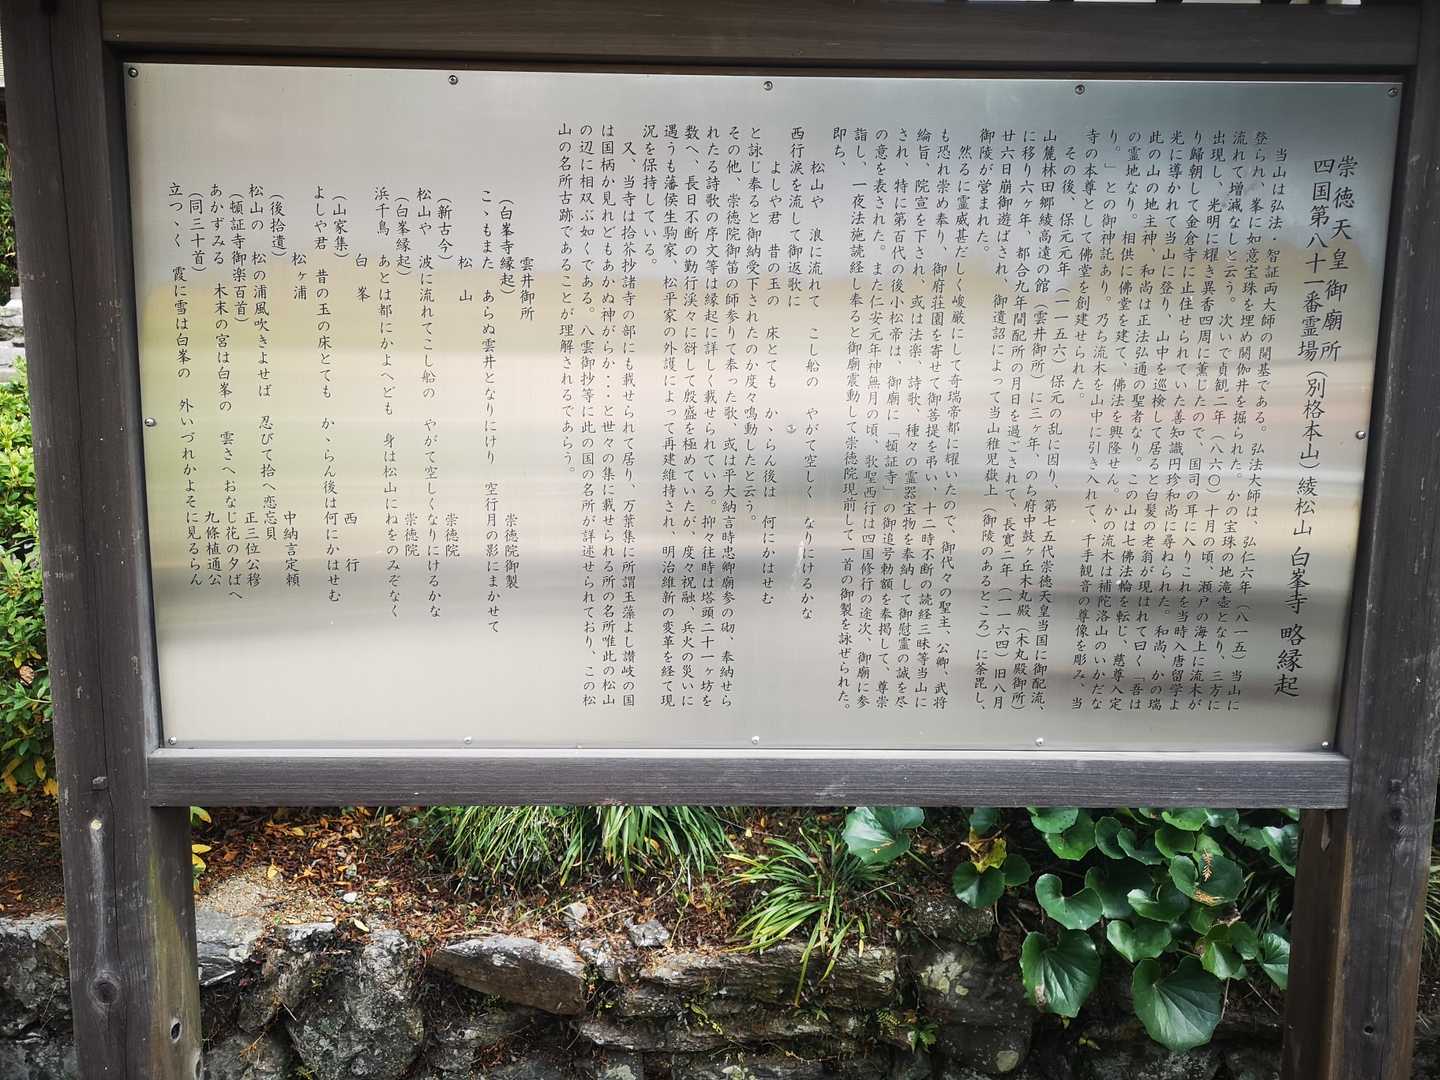 崇徳天皇御廟所
四国第八十一番霊場（別格本山）綾松山 白峯寺 略縁起
当山は弘法・智証両大師の開基である。弘法大師は、弘仁六年（八一五）当山に
登られ、峯に如意宝珠を埋め閼伽井を掘られた。かの宝珠の地滝壺となり、三方に
流れて増減なしと云う。次いで貞観二年（八六〇）十月の頃、瀬戸の海上に流木が
出現し、光明に耀き異香四周に薫じたので、国司の耳に入りこれを当時入唐留学よ
り帰朝して金倉寺に止住せられていた善知識円珍和尚に尋ねられた。和尚、かの瑞
光に導かれて当山に登り、山中を巡検して居ると白髪の老翁が現はれて曰く「吾は
此の山の地主神、和尚は正法弘通の聖者なり。この山は七佛法輪を転じ、慈尊入定
の霊地なり。相供に佛堂を建て、佛法を興隆せん。かの流木は補陀洛山のいかだな
り。」との御神託あり。乃ち流木を山中に引き入れて、千手観音の尊像を彫み、当
寺の本尊として佛堂を創建せられた。
その後、保元元年（一一五六）保元の乱に因り、第七五代崇徳天皇当国に御配流、
山麓林田郷綾高遠の館（雲井御所）に三ヶ年、のち府中鼓ヶ丘木丸殿（木丸殿御所）
に移り六ヶ年、都合九年間配所の月日を過ごされて、長寛二年（一一六四）旧八月
廿六日崩御遊ばされ、御遺詔によって当山稚児嶽上（御陵のあるところ）に荼毘し、
御陵が営まれた。
然るに霊威甚だしく峻厳にして奇瑞帝都に耀いたので、御代々の聖主、公卿、武将
も恐れ崇め奉り、御府荘園を寄せて御菩提を弔い、十二時不断の読経三昧等当山に
綸旨、院宣を下され、或は法楽、詩歌、種々の霊器宝物を奉納して御慰霊の誠を尽
され、特に第百代の後小松帝は、御廟に「頓証寺」の御追号勅額を奉掲して、尊崇
の意を表された。また仁安元年神無月の頃、歌聖西行は四国修行の途次、御廟に参
詣し、一夜法施読経し奉ると御廟震動して崇徳院現前して一首の御製を詠ぜられた。
即ち、
松山や 浪に流れて こし船の やがて空しく なりにけるかな
西行涙を流して御返歌に
よしや君 昔の玉の 床とても かゝらん後は 何にかはせむ
と詠じ奉ると御納受下されたのか度々鳴動したと云う。
その他、崇徳院御笛の師参りて奉った歌、或は平大納言時忠卿廟参の砌、奉納せら
れたる詩歌の序文等は縁起に詳しく載せられている。抑々往時は塔頭二十一ヶ坊を
数へ、長日不断の勤行渓々に谺して殷盛を極めていたが、度々祝融、兵火の災いに
遇うも藩侯生駒家、松平家の外護によって再建維持され、明治維新の変革を経て現
況を保持している。
又、当寺は拾芥抄諸寺の部にも載せられて居り、万葉集に所謂玉藻よし讃岐の国
は国柄か見れどもあかぬ神がらか・・と世々の集に載せられし所の名所唯此の松山
の辺に相双ぶ如くである。八雲御抄等に此の国の名所が詳述せられており、この松
山の名所古跡であることが理解されるであらう。
雲井御所
（白峯寺縁起） 崇徳院御製
こゝもまた あらぬ雲井となりにけり 空行月の影にまかせて
松山
（新古今） 崇徳院
松山や 波に流れてこし船の やがて空しくなりにけるかな
（白峯縁起） 崇徳院
浜千鳥 あとは都にかよへども 身は松山にねをのみぞなく
白峯
（山家集） 西行
よしや君 昔の玉の床とても かゝらん後は何にかはせむ
松ヶ浦
（後拾遺） 中納言定頼
松山の 松の浦風吹きよせば 忍びて拾へ恋忘貝
（頓証寺御楽百首） 正三位公穆
あかずみる 木末の宮は白峯の 雲さへおなじ花の夕ばへ
（同三十首） 九條植通公
立つゝく 霞に雪は白峯の 外いづれかよそに見るらん